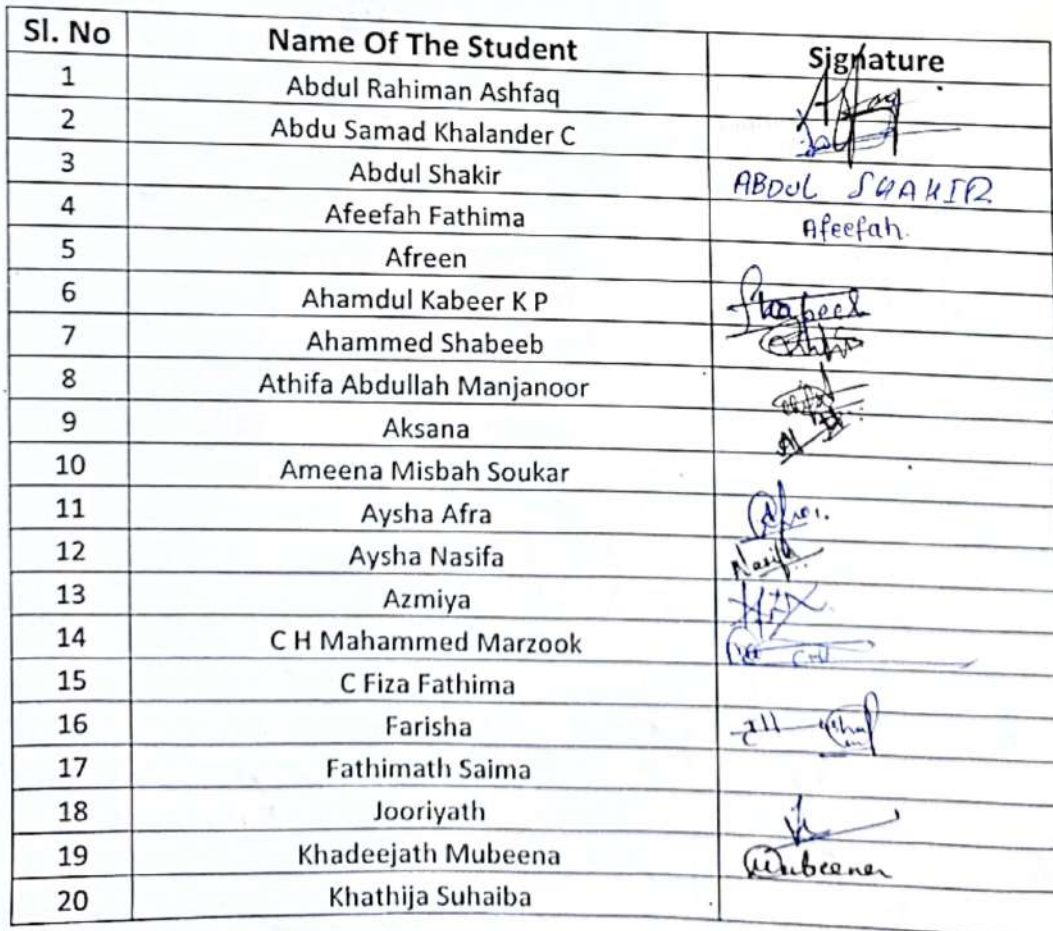 Sl. No Name Of The Student Signature
1 Abdul Rahiman Ashfaq
2 Abdu Samad Khalander C
3 Abdul Shakir ABDUL SHAKIR
4 Afeefah Fathima Afeefah.
5 Afreen
6 Ahamdul Kabeer K P
7 Ahammed Shabeeb
8 Athifa Abdullah Manjanoor
9 Aksana
10 Ameena Misbah Soukar
11 Aysha Afra
12 Aysha Nasifa Nasifa
13 Azmiya
14 C H Mahammed Marzook
15 C Fiza Fathima
16 Farisha
17 Fathimath Saima
18 Jooriyath
19 Khadeejath Mubeena Mubeena
20 Khathija Suhaiba